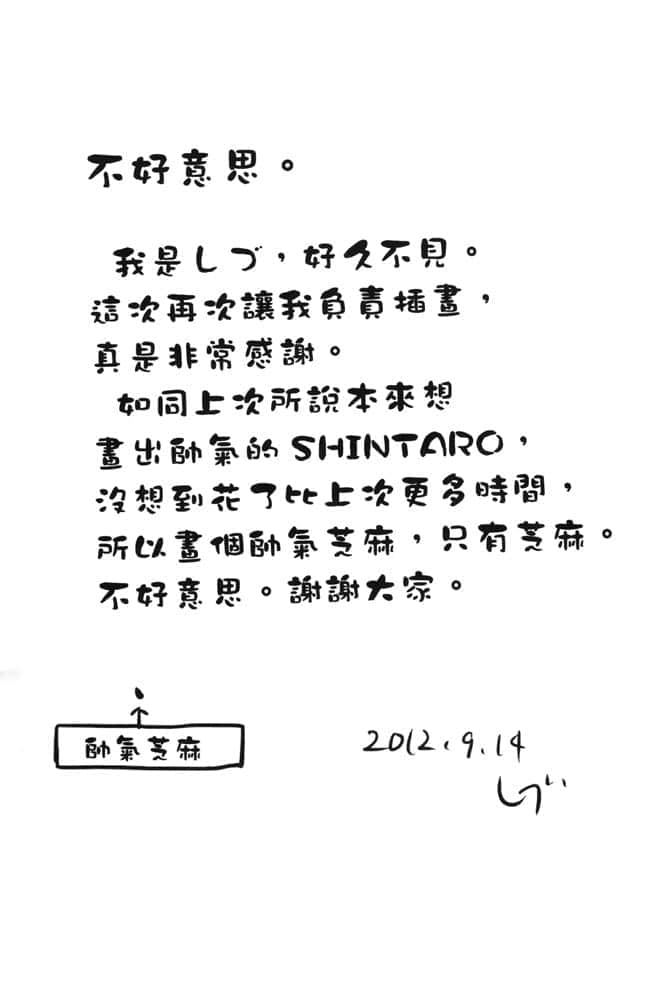 不好意思。
我是しづ，好久不見。
這次再次讓我負責插畫，
真是非常感謝。
如同上次所說本來想
畫出帥氣的 SHINTARO，
沒想到花了比上次更多時間，
所以畫個帥氣芝麻，只有芝麻。
不好意思。謝謝大家。
帥氣芝麻
2012.9.14
しづ